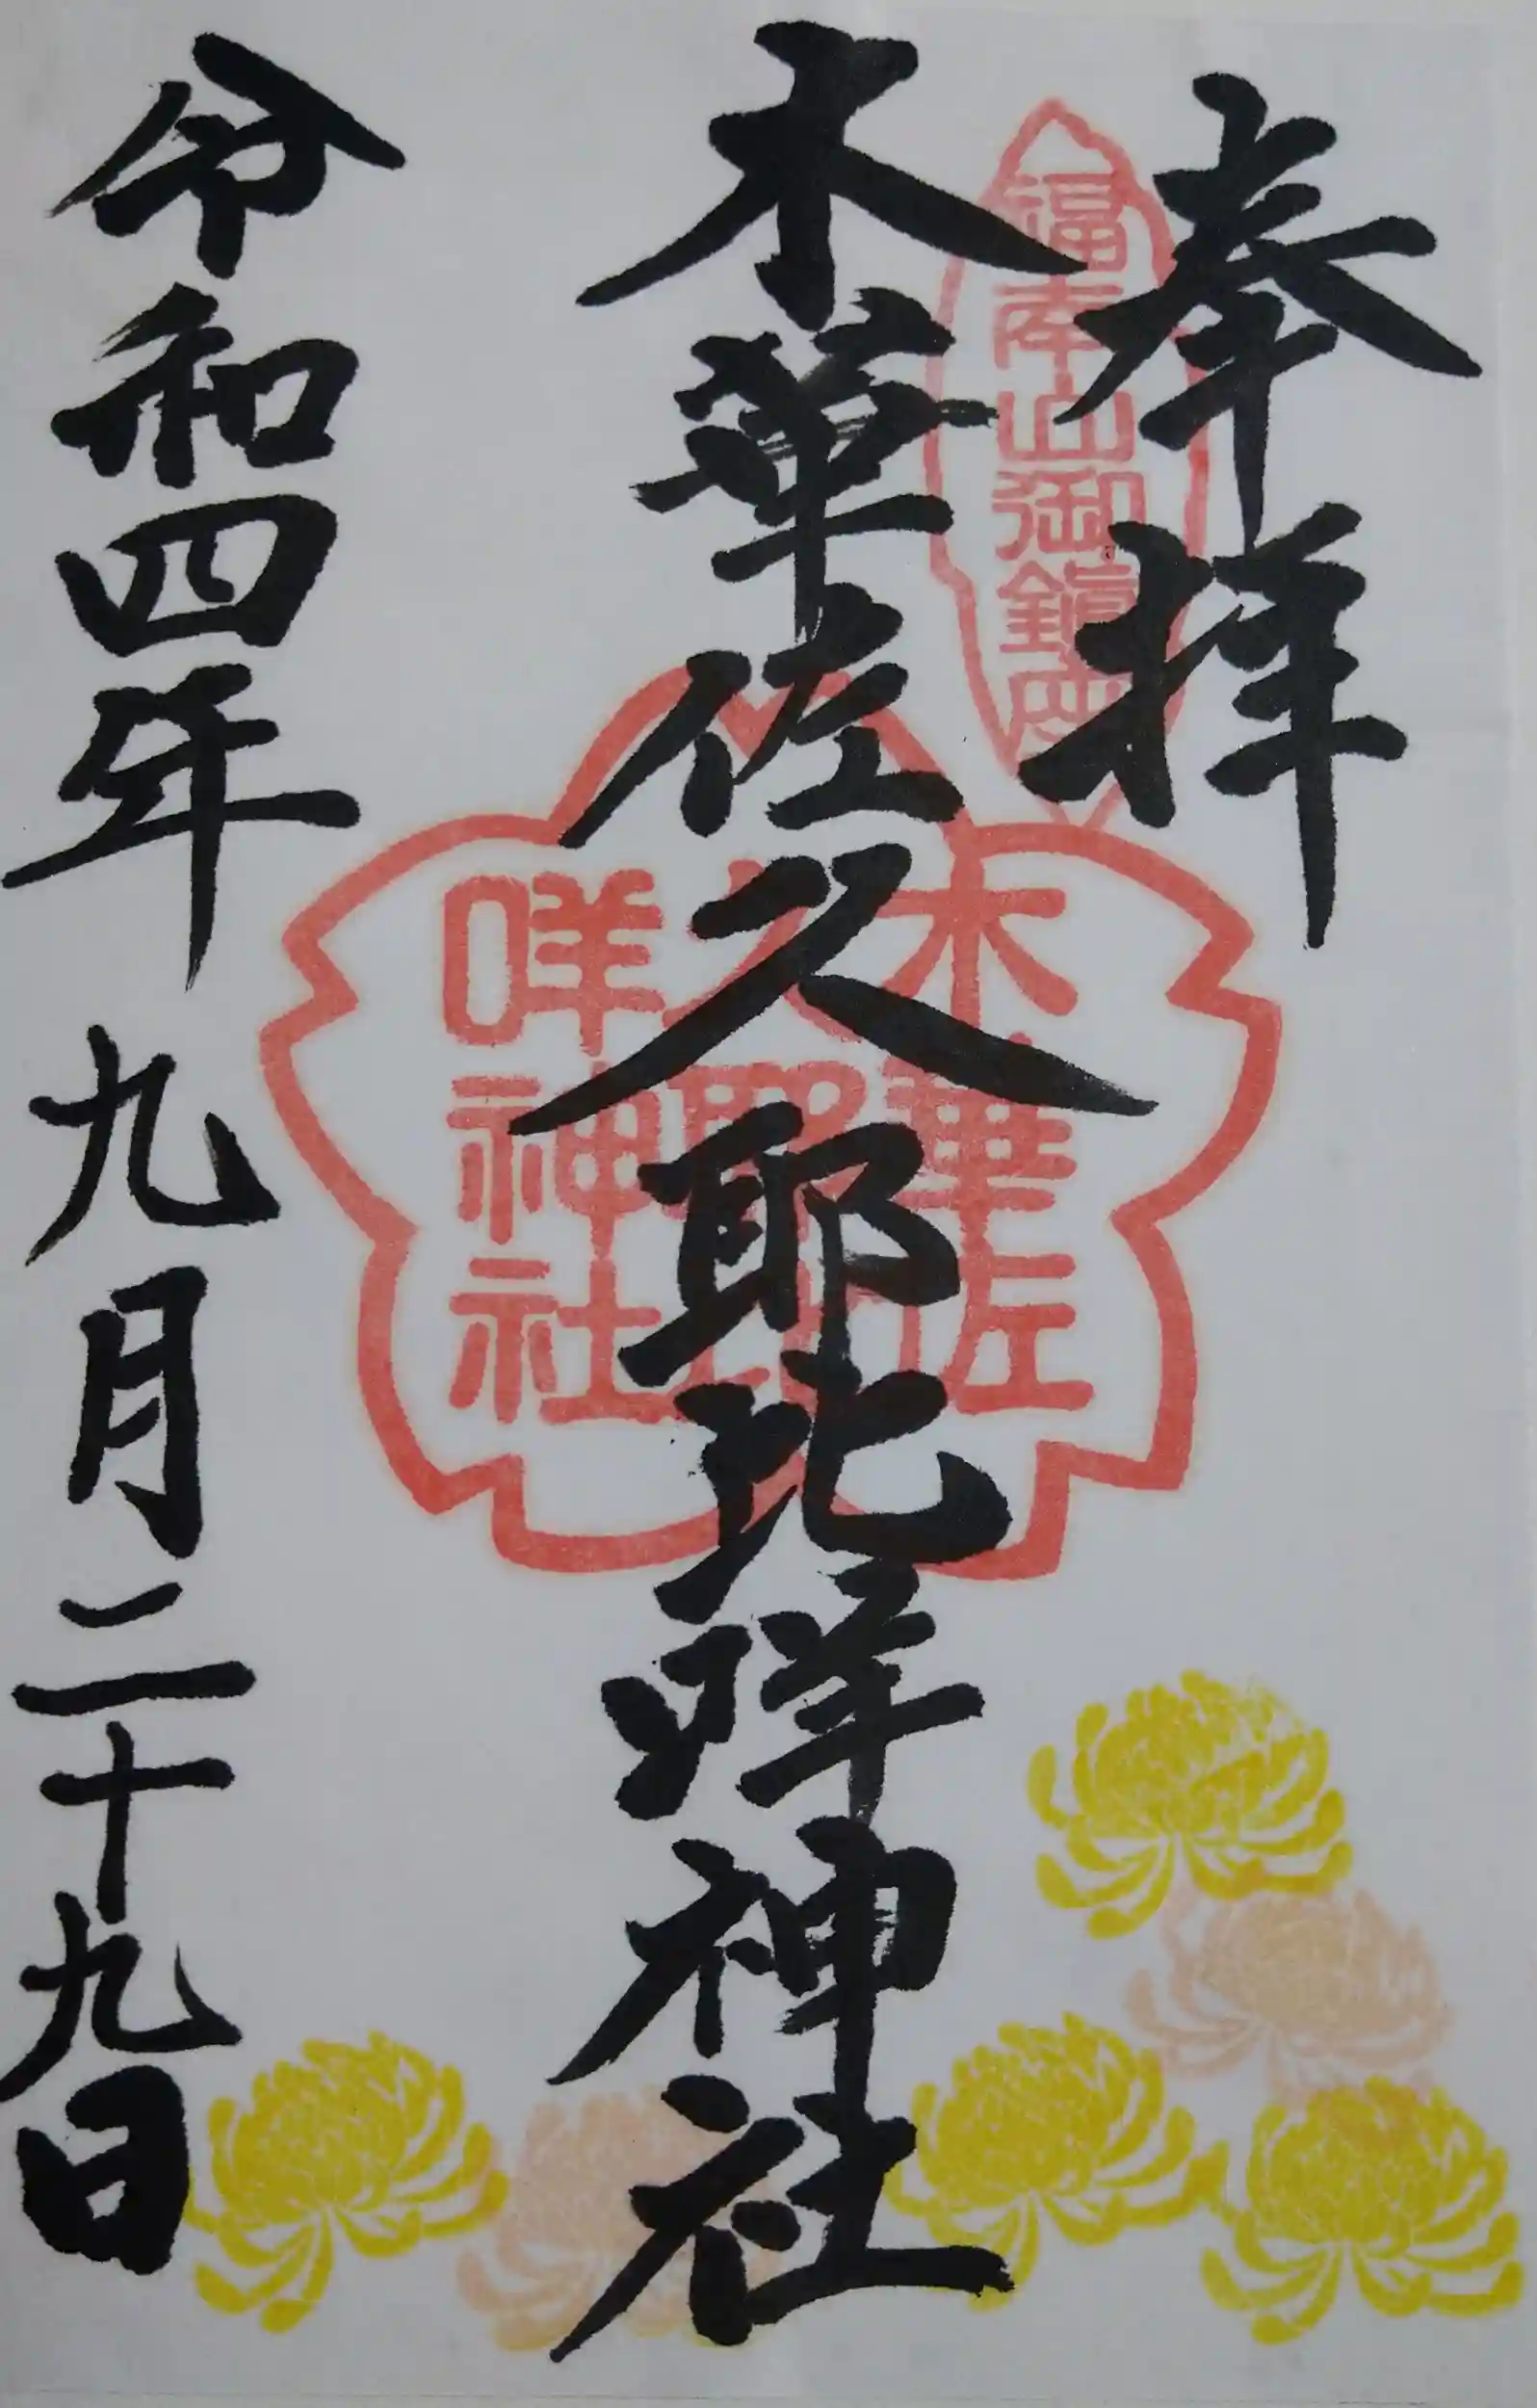 奉拝
福南山御鎮座
木華佐久耶比咩神社
木華佐
久耶比
咩神社
令和四年 九月二十九日